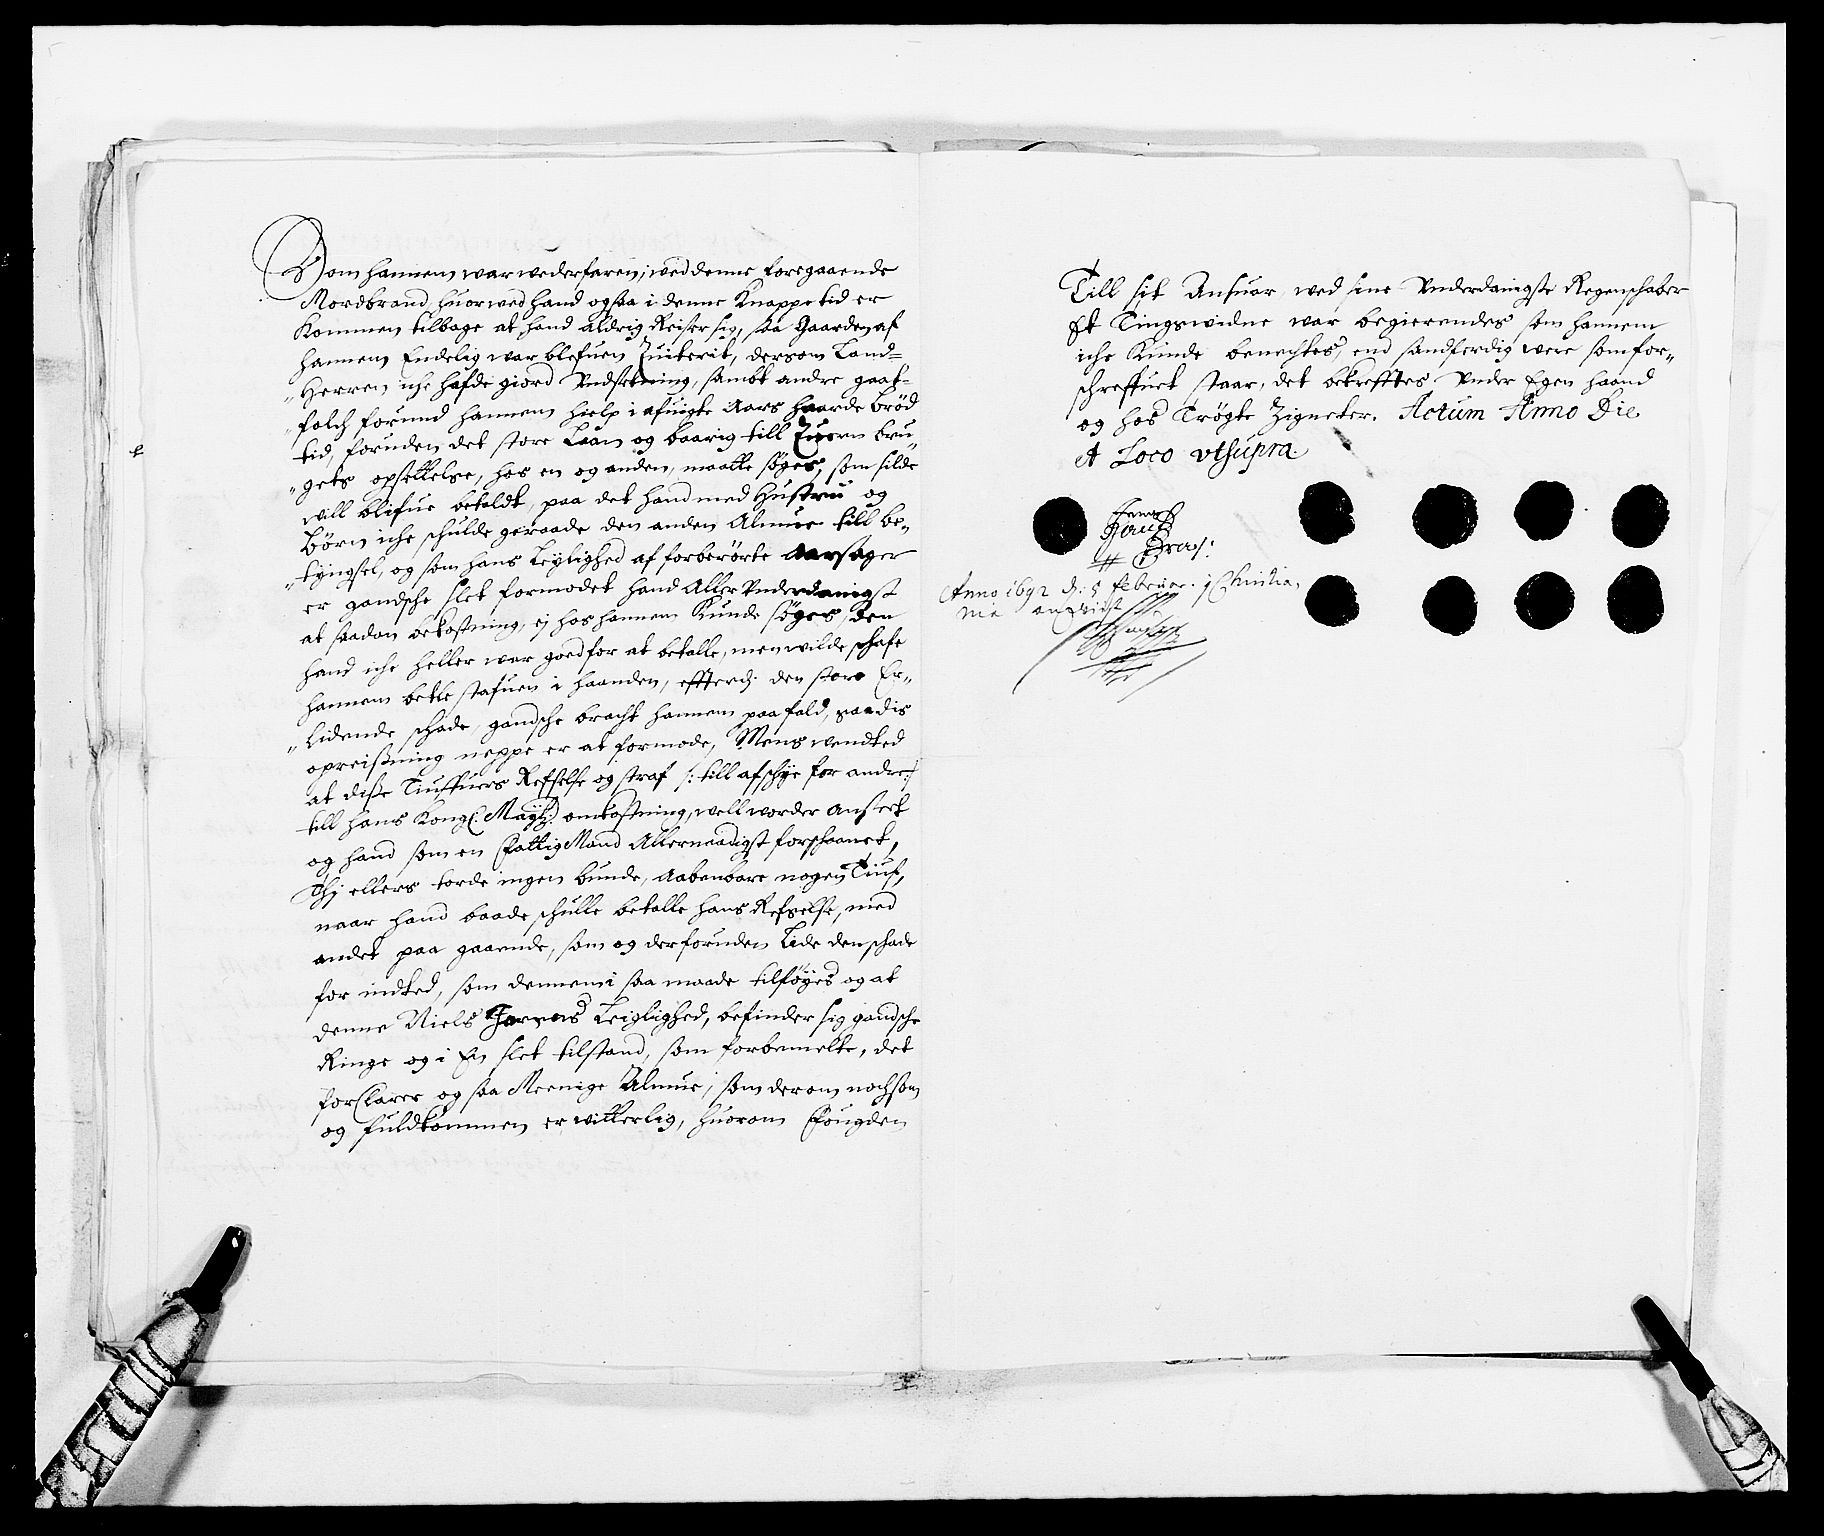 Som hannem war wederfaren, i ved denne foregaaende
Mordbrand, huorved hand ogsaa i denne Knappe tid er
Kommen tilbage at hand aldrig Reiser sig, saa Gaarden af
hannem Endelig war blefuen quiterit, dersom Land-
Herren iche hafde giord Undsetning, sambt andre gaat-
folch forund hannem hielp i afuigte Aars haarde Brød
tid, foruden det store Laan og baarig till Euern bru-
gets opsettelse, hos en og anden, maatte søges, som silde
will blifue betaldt, paa det hand med Hustru og
Børn iche schulde geraade den anden Almue till be-
tyngsel, og som hans Leylighed af forberørte Aarsager
er gandsche slet formodet hand Aller Underdanigst
at saadan bekostning, ej hos hannem Kunde søges, den
hand iche heller war goed for at betalle, men wilde schafe
hannem bettelstafuen i haanden, effterdj den store Er-
Lidende schade, gandsche bracht hannem paa fald, saa dis
opreisning neppe er at formode, Mens wendted
at disse Tiuffuers Refselse og straf /: till afschye for andre :/
till hans Kongl: Mayts: omkostning, well worder ansett
og hand som en Fattig Mand Allernaadigst forschaanet,
Thj ellers torde ingen bunde, Aabenbare nogen Tiuf,
naar hand baade schulle betalle hans Refselse, med
andet paa gaaende, som og derforuden Lide den schade
for indted, som dennem i saa maade tilføyes og at
denne Niels Leiglighed, befinder sig gandsche
Ringe og i En slet tilstand, som forbemelte, det
forClarer og saa Meenige Almue, som derom nochsom
og fuldkommen er witterlig, huorom Fougden
Till sit Ansuar, ved sine Underdanigste Regenschaber
Et Tingswidne war begierendes som hannem
iche Kunde benechtes, end sandferdig were som for-
schreffuet staar, det bekrefftes Under Egen haand
og hos Trøgte Zigneter. Actum Anno Die
et Loco vtsupra.
Anno 1692 d: 5 Februar: i Christia-
nia anviist